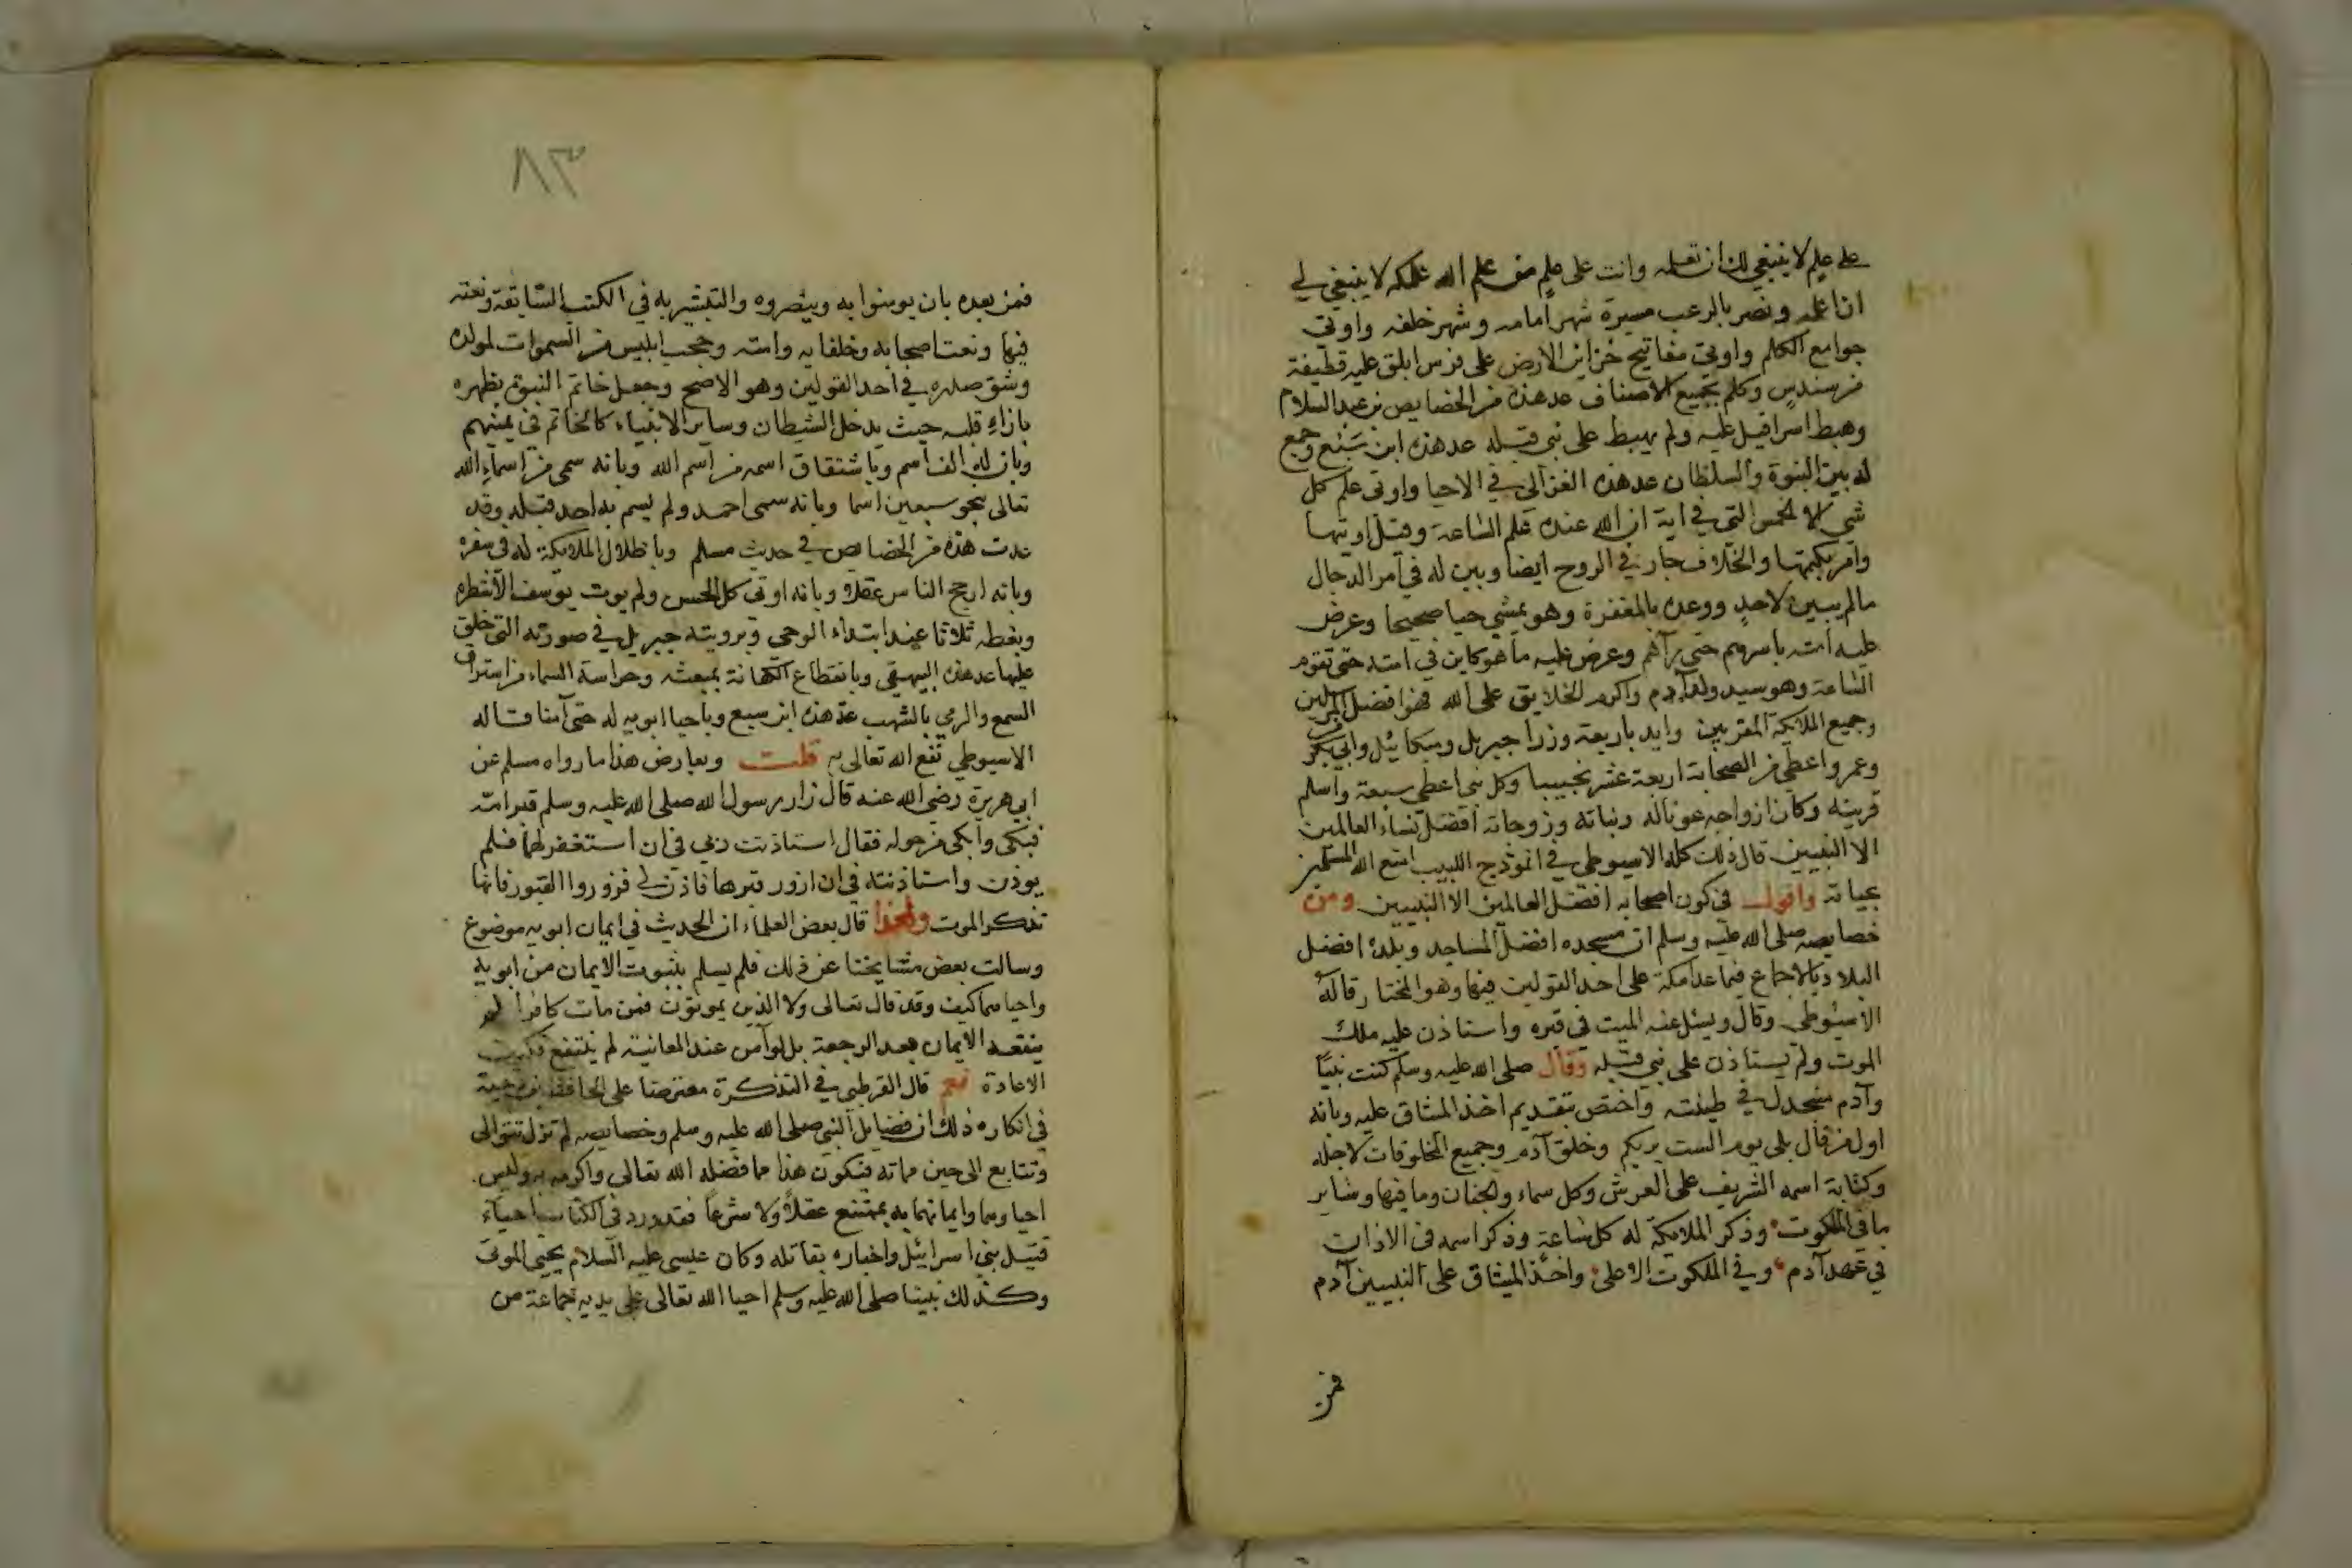 على علم لا ينبغي لك ان تعلمه وانت على علم من علم الله علمكه لا ينبغي لي
ان اعلمه ونصر بالرعب مسيرة شهر امامه وشهر خلفه واوتي
جوامع الكلم واوتي مفاتيح خزاين الارض على فرس ابلق عليه قطيفة
من سندس وكلم بجميع الاصناف عد هذه من الخصايص بن عبد السلام
وهبط اسرافيل عليه ولم يهبط على نبي قبله عد هذه ابن سَبُع وجمع
له بين النبوة والسلطان عد هذه الغزالي في الاحيا واوتي علم كل
شي الا الخمس التي في اية ان الله عنده علم الساعة وقيل اوتيها
وامر بكتمها والخلاف جار في الروح ايضا وبين له في امر الدجال
مالم يبين لاحدٍ ووعده بالمغفرة وهو يمشي حيا صحيحا وعرض
عليه امته باسرهم حتى رآهم وعرض عليه ما هو كاين في امته حتى تقوم
الساعة وهو سيد ولد آدم واكرم الخلايق على الله فهو افضل المرسلين
وجميع الملايكة المقربين وايد باربعة وزرا جبريل وميكائيل وابي بكر
وعمر واعطي من الصحابة اربعة عشر نجيبا وكل نبي اعطي سبعة واسلم
قرينه وكان ازواجه عونا له وبناته وزوجاته افضل نساء العالمين
الا النبيين قال ذلك كله الاسيوطي في انموذج اللبيب امتع الله المسلمين
بحياته واقول في كون اصحابه افضل العالمين الا النبيين ومن
خصايصه صلى الله عليه وسلم ان مسجده افضل المساجد وبلده افضل
البلاد بالاجماع فيما عدا مكة على احد القولين فيها وهو المختار قاله
الاسيوطي وقال ويسئل عنه الميت في قبره واستاذن عليه ملك
الموت ولم يستاذن على نبي قبله وقال صلى الله عليه وسلم كنت نبيّا
وآدم منجدل في طينته واختص بتقديم اخذ الميثاق عليه وبانه
اول من قال بلى يوم الست بربكم وخلق آدم وجميع المخلوقات لاجله
وكتابة اسمه الشريف على العرش وكل سماء والجنان وما فيها وساير
ما في الملكوت وذكر الملايكة له كل ساعةٍ وذكر اسمه في الاذان
في عهد آدم وفي الملكوت الاعلى واخذ الميثاق على النبيين آدم
فمن
٨٣
فمن بعده بان يومنوا به وينصروه والتبشير به في الكتب السابقة ونعته
فيها ونعت اصحابه وخلفايه وامته وحجب ابليس من السموات لمولده
وشق صدره في احد القولين وهو الاصح وجعل خاتم النبوة بظهره
بازاء قلبه حيث يدخل الشيطان وساير الانبياء كان الخاتم في يمينهم
وبان له الف اسم وباشتقاق اسمه من اسم الله وبانه سمى من اسماء الله
تعالى بنحو سبعين اسما وبانه سمى احمد ولم يسم به احد قبله وقد
عدت هذه من الخصايص في حديث مسلم وباظلال الملايكة له في سفره
وبانه ارجح الناس عقلا وبانه اوتي كل الحسن ولم يوت يوسف الا شطره
وبغطه ثلاثا عند ابتداء الوحي وبرويته جبريل في صورته التي خلق
عليها عد هذه البيهقي وبانقطاع الكهانة بمبعثه وحراسة السماء من استراق
السمع والرمي بالشهب عد هذه ابن سبع وباحيا ابويه له حتى آمنا قاله
الاسيوطي نفع الله تعالى به قلت ويعارض هذا ما رواه مسلم عن
ابي هريرة رضي الله عنه قال زار رسول الله صلى الله عليه وسلم قبر امه
فبكى وابكى من حوله فقال استاذنت ربي في ان استغفر لها فلم
يوذن واستاذنته في ان ازور قبرها فاذن لي فزوروا القبور فانها
تذكر الموت ولهذا قال بعض العلماء ان الحديث في ايمان ابويه موضوع
وسالت بعض مشايخنا عن ذلك فلم يسلم بثبوت الايمان من ابويه
واحياهما كيف وقد قال تعالى ولا الذين يموتون فمن مات كافرا لم
ينفعه الايمان بعد الرجعة بل لو آمن عند المعاينة لم ينتفع فكيف
الاعادة نعم قال القرطبي في التذكرة معترضا على الحافظ بن دحية
في انكاره ذلك ان فضايل النبي صلى الله عليه وسلم وخصايصه لم تزل تتوالى
وتتابع الى حين مماته فيكون هذا مما فضله الله تعالى واكرمه به وليس
احياوهما وايمانهما به بممتنع عقلاً ولا شرعاً فقد ورد في الكتاب احياء
قتيل بني اسرائيل واخباره بقاتله وكان عيسى عليه السلام يحيى الموتى
وكذلك نبينا صلى الله عليه وسلم احيا الله تعالى على يديه جماعة من